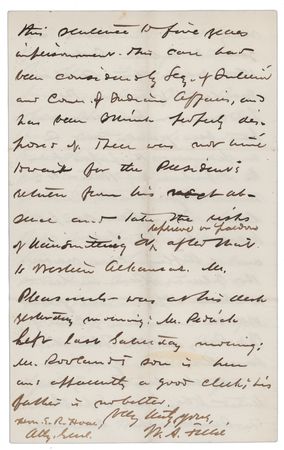 this sentence to five years
imprisonment. This case had
been considered by Secy. of Interior
and Com. of Indian Affairs, and
has been I think properly dis-
posed of. There was not time
to wait for the President's
return from his next ab-
sence and take the risks
reprieve or pardon
of transmitting by after that
to Western Arkansas. Mr.
Pleasants was at his desk
yesterday morning: Mr.
left last Saturday morning:
Mr. Rowland's son is here
and apparently a good clerk; his
father is no better.
Very truly yours,
Hon. E. R. Hoar,
Atty. Genl.
W. A. Field